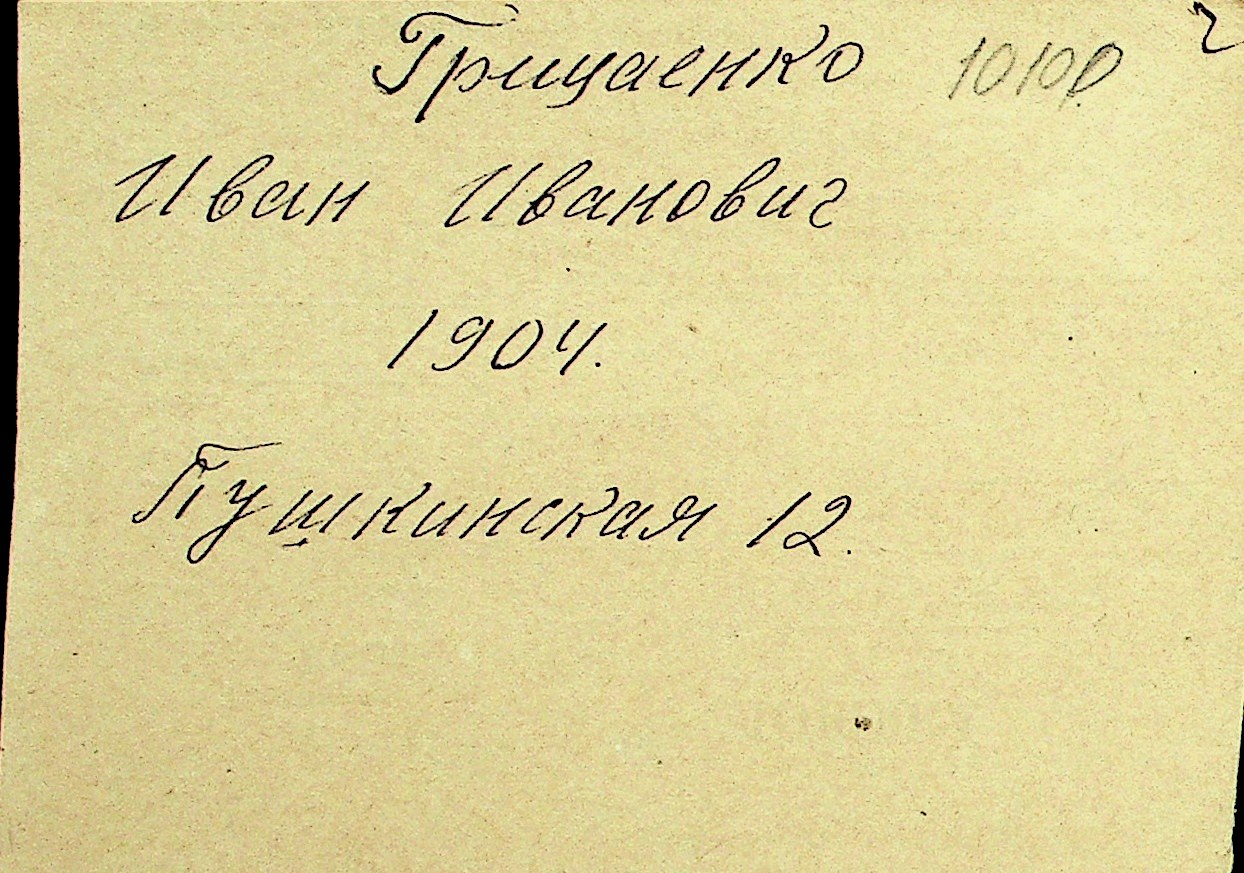 Грицаенко
Иван Иванович
1904.
Пушкинская 12.